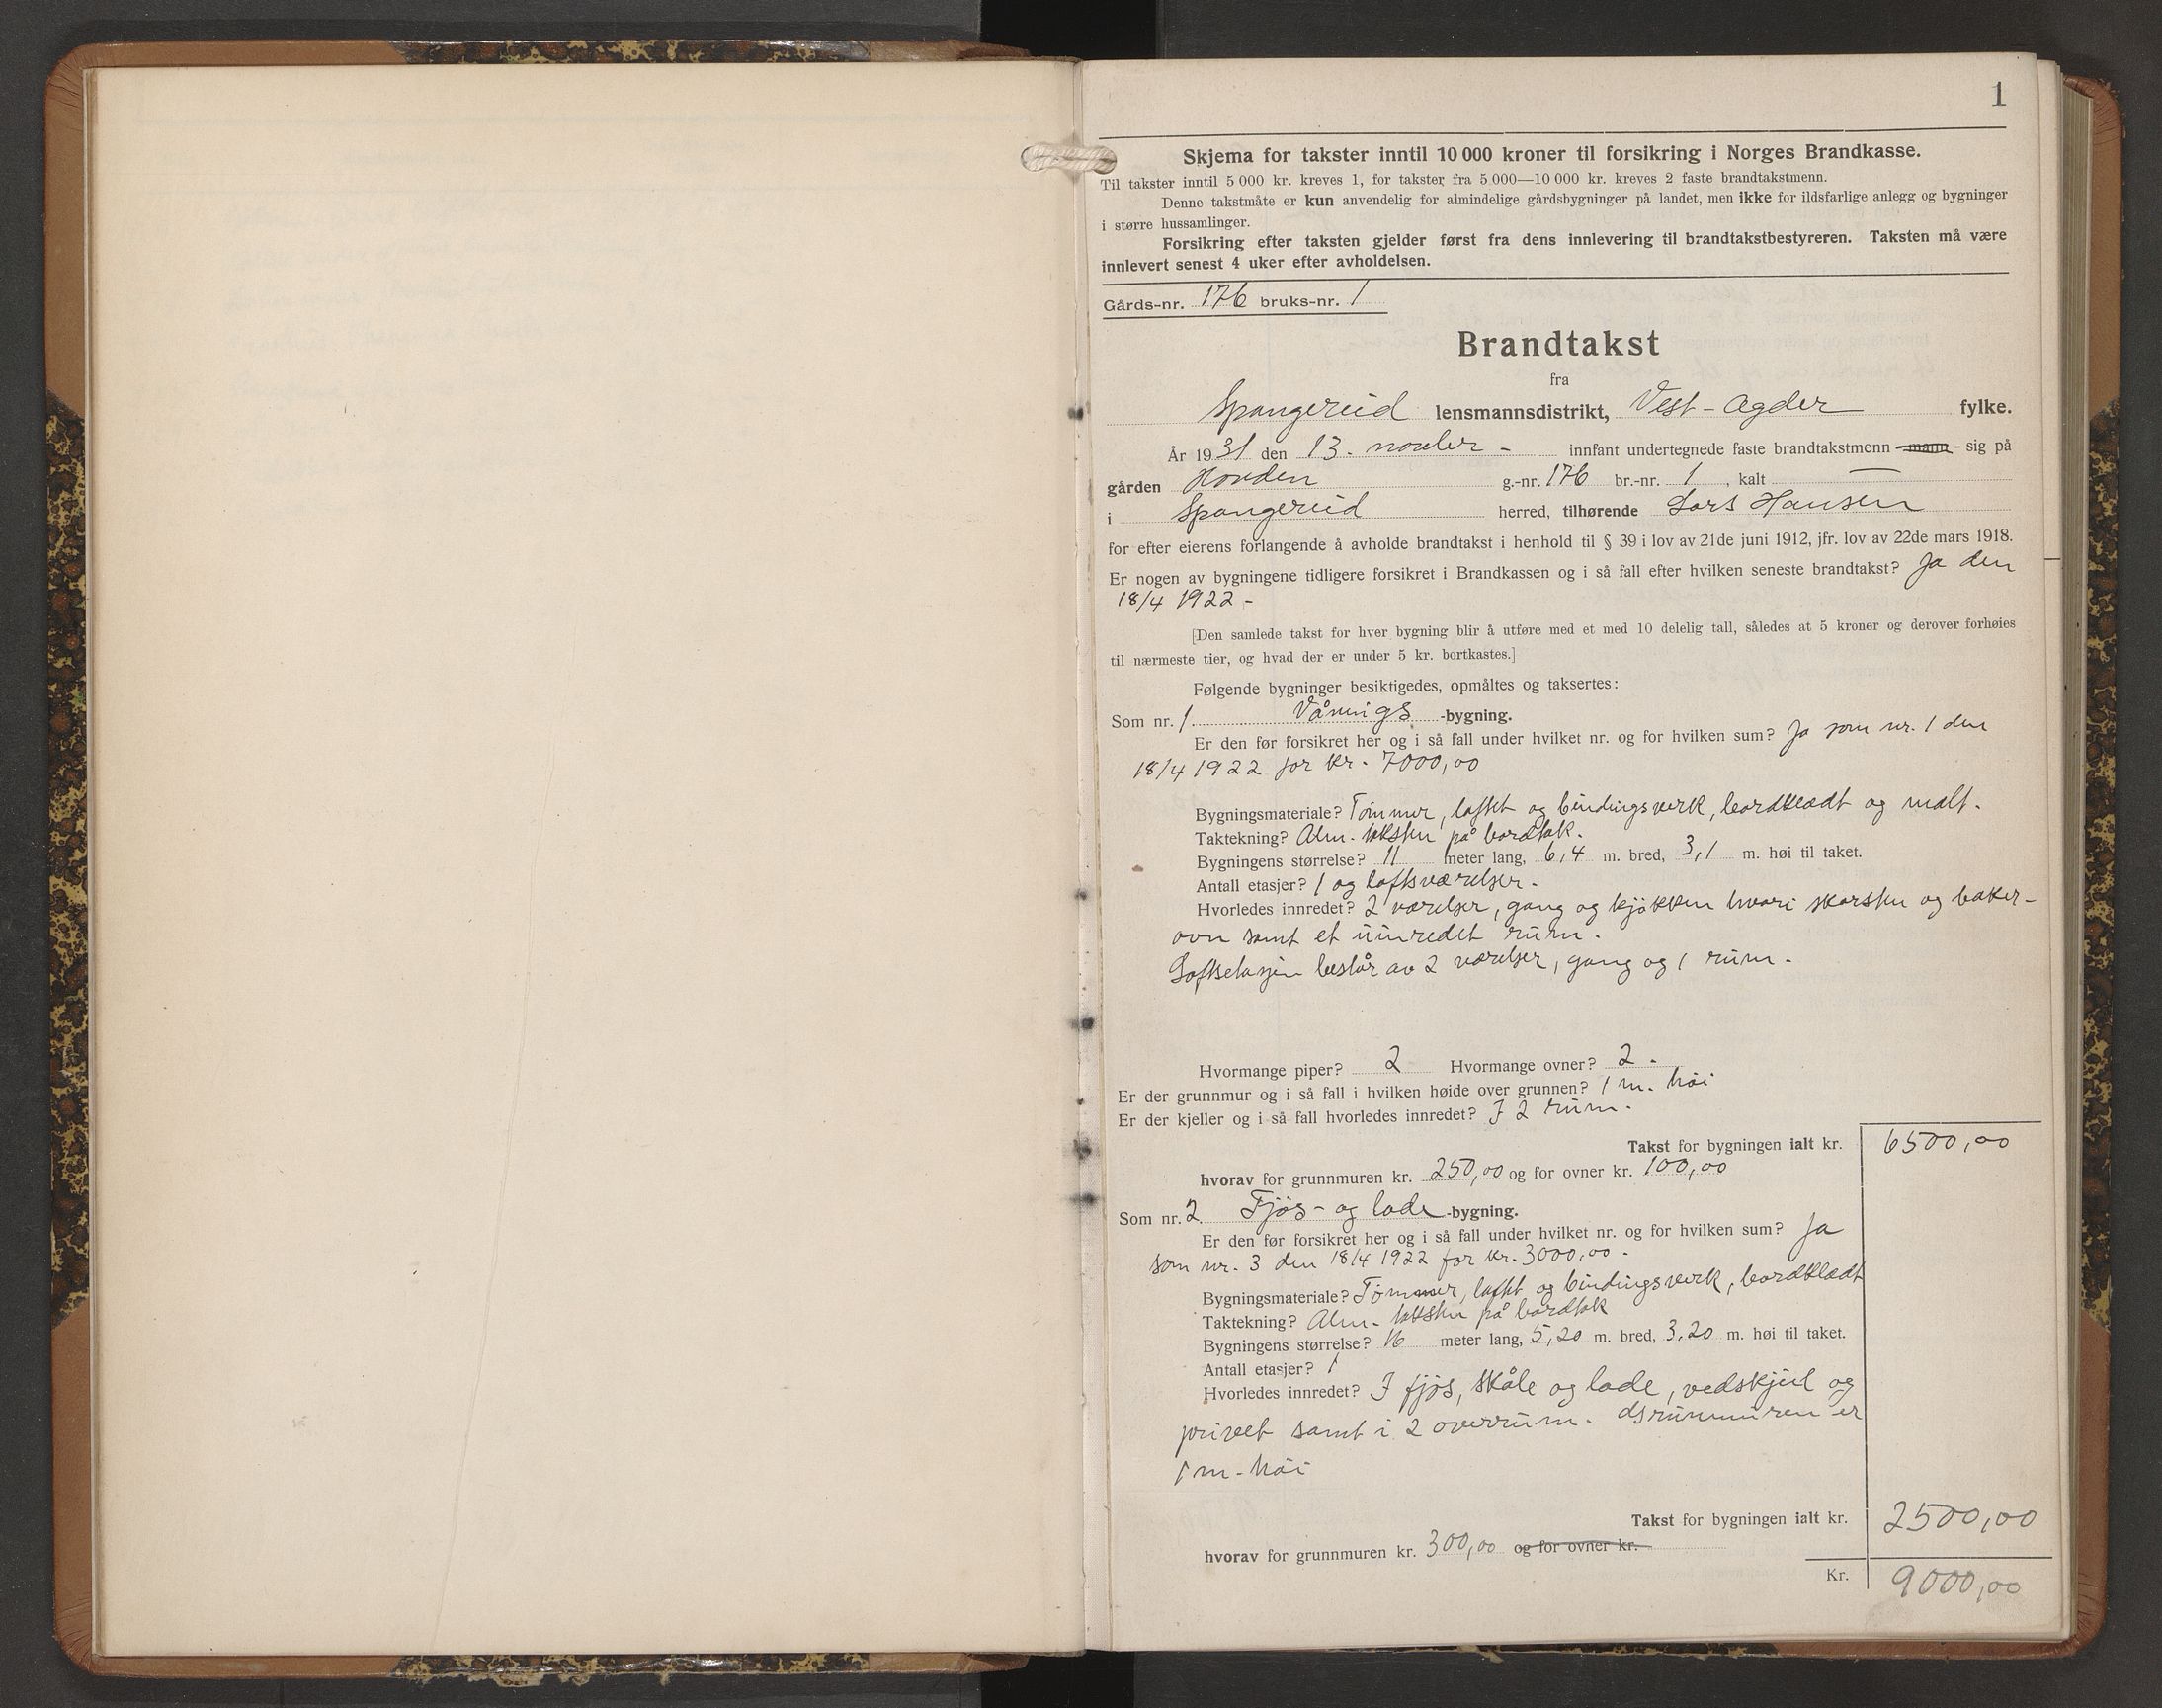 1
Skjema for takster inntil 10 000 kroner til forsikring i Norges Brandkasse.
Til takster inntil 5 000 kr. kreves 1, for takster fra 5 000—10 000 kr. kreves 2 faste brandtakstmenn.
Denne takstmåte er kun anvendelig for almindelige gårdsbygninger på landet, men ikke for ildsfarlige anlegg og bygninger
i større hussamlinger.
Forsikring efter taksten gjelder først fra dens innlevering til brandtakstbestyreren. Taksten må være
innlevert senest 4 uker efter avholdelsen.
Gårds-nr. 176 bruks-nr. 1
Brandtakst
fra
Spangereid lensmannsdistrikt, Vest-Agder fylke.
År 1931 den 13. novbr - innfant undertegnede faste brandtakstmenn -mann- sig på
gården Hovden g.-nr. 176 br.-nr. 1, kalt —
i Spangereid herred, tilhørende Lars Hansen
for efter eierens forlangende å avholde brandtakst i henhold til § 39 i lov av 21de juni 1912, jfr. lov av 22de mars 1918.
Er nogen av bygningene tidligere forsikret i Brandkassen og i så fall efter hvilken seneste brandtakst? Ja den
18/4 1922 -
[Den samlede takst for hver bygning blir å utføre med et med 10 delelig tall, således at 5 kroner og derover forhøies
til nærmeste tier, og hvad der er under 5 kr. bortkastes.]
Følgende bygninger besiktigedes, opmåltes og taksertes:
Som nr. 1. Vånings -bygning.
Er den før forsikret her og i så fall under hvilket nr. og for hvilken sum? Ja som nr. 1 den
18/4 1922 for kr. 7000,00
Bygningsmateriale? Tømmer, laftet og bindingsverk, bordklædt og malt.
Taktekning? Alm. taksten på bordtak.
Bygningens størrelse? 11 meter lang, 6,4 m. bred, 3,1 m. høi til taket.
Antall etasjer? 1 og loftsværelser.
Hvorledes innredet? 2 værelser, gang og kjøkken hvori skorsten og baker-
ovn samt et uinredet rum.
Loftsetasjen består av 2 værelser, gang og 1 rum.
Hvormange piper? 2 Hvormange ovner? 2.
Er der grunnmur og i så fall i hvilken høide over grunnen? 1 m. høi
Er der kjeller og i så fall hvorledes innredet? I 2 rum.
Takst for bygningen ialt kr. 6500,00
hvorav for grunnmuren kr. 250,00 og for ovner kr. 100,00
Som nr. 2. Fjøs- og lade -bygning.
Er den før forsikret her og i så fall under hvilket nr. og for hvilken sum? Ja
som nr. 3 den 18/4 1922 for kr. 3000,00.
Bygningsmateriale? Tømmer, laftet og bindingsverk, bordklædt
Taktekning? Alm. taksten på bordtak
Bygningens størrelse? 16 meter lang, 5,20 m. bred, 3,20 m. høi til taket.
Antall etasjer? 1
Hvorledes innredet? I fjøs, skåle og lade, vedskjul og
privet samt i 2 overrum. Grunnmuren er
1 m. høi
Takst for bygningen ialt kr. 2500,00
hvorav for grunnmuren kr. 300,00 og for ovner kr.
Kr. 9000,00